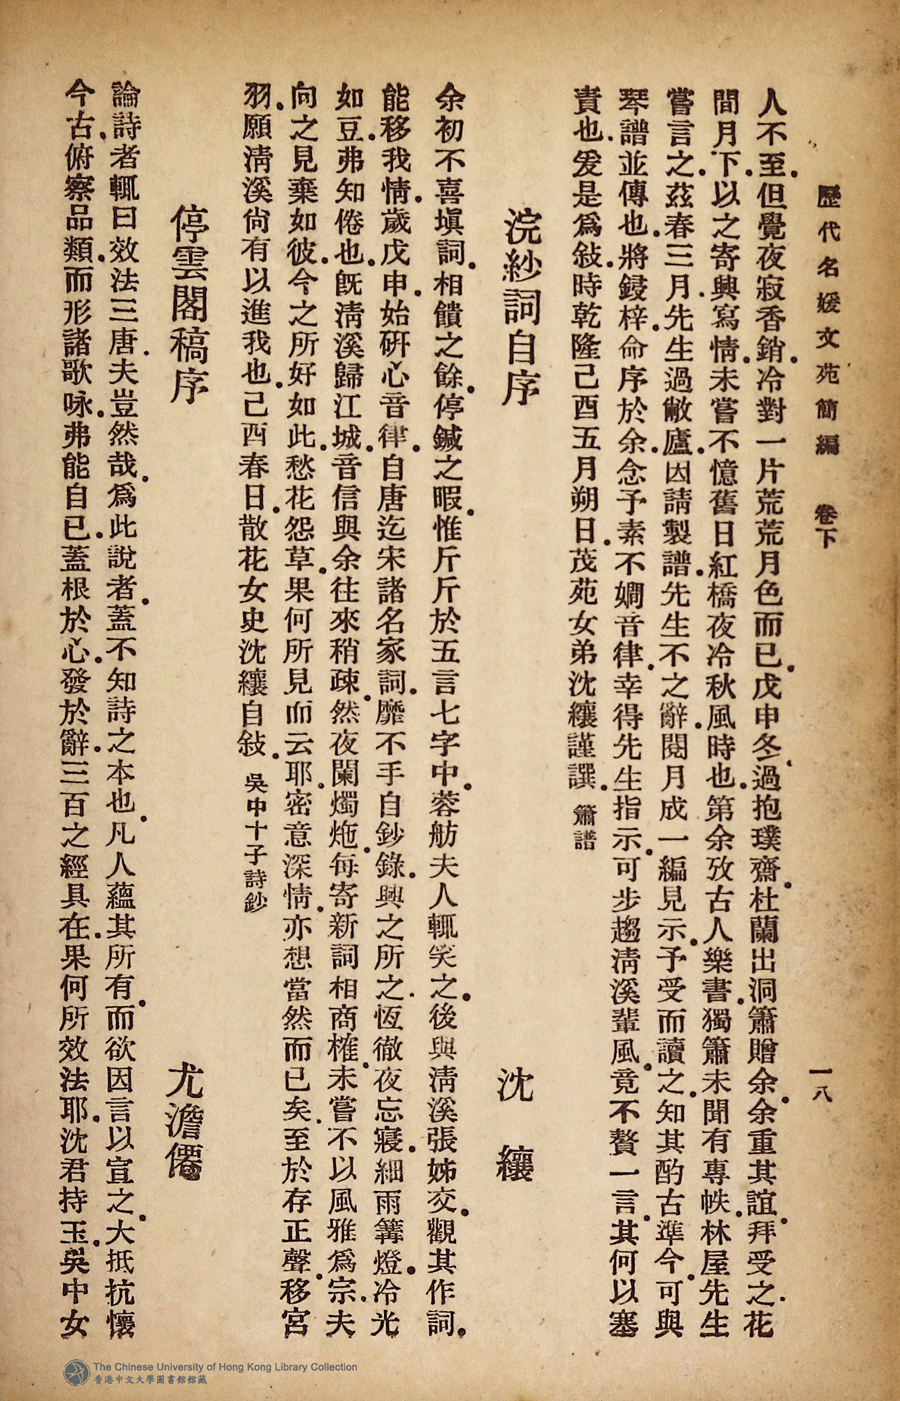 歷代名媛文苑簡編 卷下 一八
人不至.但覺夜寂香銷.冷對一片荒荒月色而已.戊申冬.過抱璞齋.杜蘭出洞簫贈余.余重其誼.拜受之.花
間月下.以之寄興寫情.未嘗不憶舊日紅橋夜冷秋風時也.第余攷古人樂書.獨簫未聞有專帙.林屋先生
嘗言之.茲春三月.先生過敝廬.因請製譜.先生不之辭.閱月成一編見示.予受而讀之.知其酌古準今.可與
琴譜並傳也.將鋟梓.命序於余.念予素不嫺音律.幸得先生指示.可步趨淸溪輩風.竟不贅一言.其何以塞
責也.爰是爲敍.時乾隆己酉五月朔日.茂苑女弟沈纕謹譔.簫譜
浣紗詞自序 沈 纕
余初不喜塡詞.相饋之餘.停鍼之暇.惟斤斤於五言七字中.蓉舫夫人輒笑之.後與淸溪張姊交.觀其作詞.
能移我情.歲戊申.始硏心音律.自唐迄宋諸名家詞.靡不手自鈔錄.興之所之.恆徹夜忘寢.細雨篝燈.冷光
如豆.弗知倦也.旣淸溪歸江城.音信與余往來稍疎.然夜闌燭灺.每寄新詞相商榷.未嘗不以風雅爲宗.夫
向之見棄如彼.今之所好如此.愁花怨草.果何所見而云耶.密意深情.亦想當然而已矣.至於存正聲.移宮
羽.願淸溪尙有以進我也.己酉春日.散花女史沈纕自敍.吳中十子詩鈔
停雲閣稿序 尤澹僊
論詩者輒曰效法三唐.夫豈然哉.爲此說者.蓋不知詩之本也.凡人蘊其所有.而欲因言以宣之.大抵抗懷
今古.俯察品類.而形諸歌咏.弗能自已.蓋根於心.發於辭.三百之經具在.果何所效法耶.沈君持玉.吳中女
The Chinese University of Hong Kong Library Collection
香港中文大學圖書館館藏